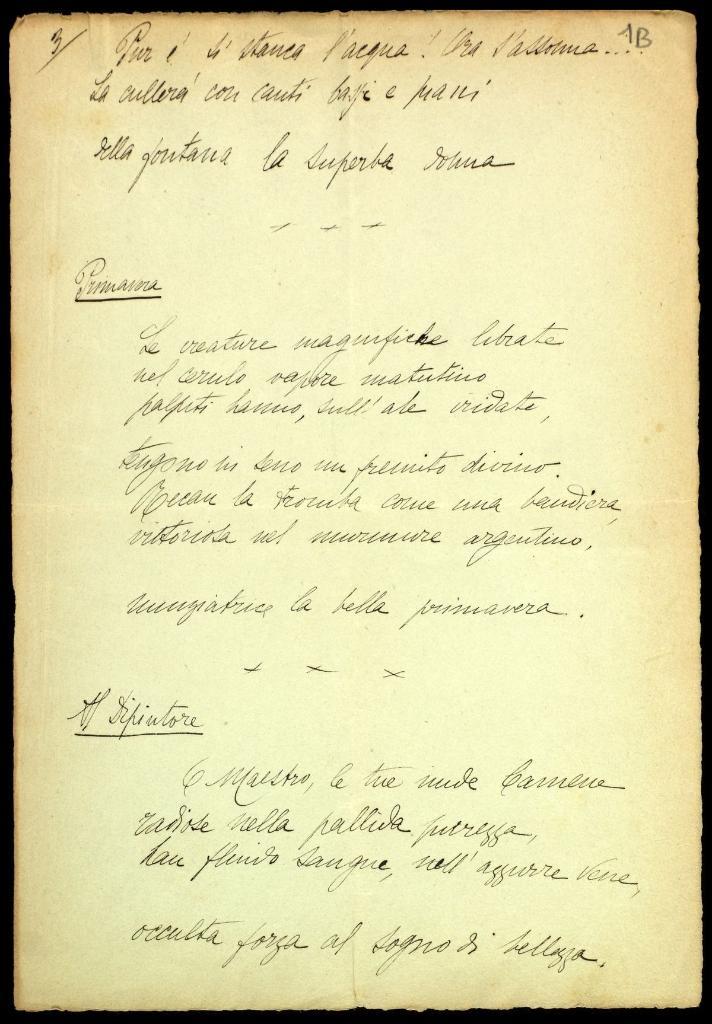 3/ 1B
Pur è si stanca l'acqua! Ora s'assonna....
La cullerà con canti bassi e piani
della fontana la superba donna
Primavera
Le creature magnifiche librate
nel cerulo vapore matutino
palpiti hanno, sull'ale iridate,
tengono in seno un fremito divino.
Recan la tromba come una bandiera
vittoriosa nel murmure argentino,
nunziatrice la bella primavera.
Al Dipintore
O Maestro, le tue nude Camene
radiose nella pallida purezza,
han fluido sangue, nell'azzurre vene,
occulta forza al sogno di bellezza.